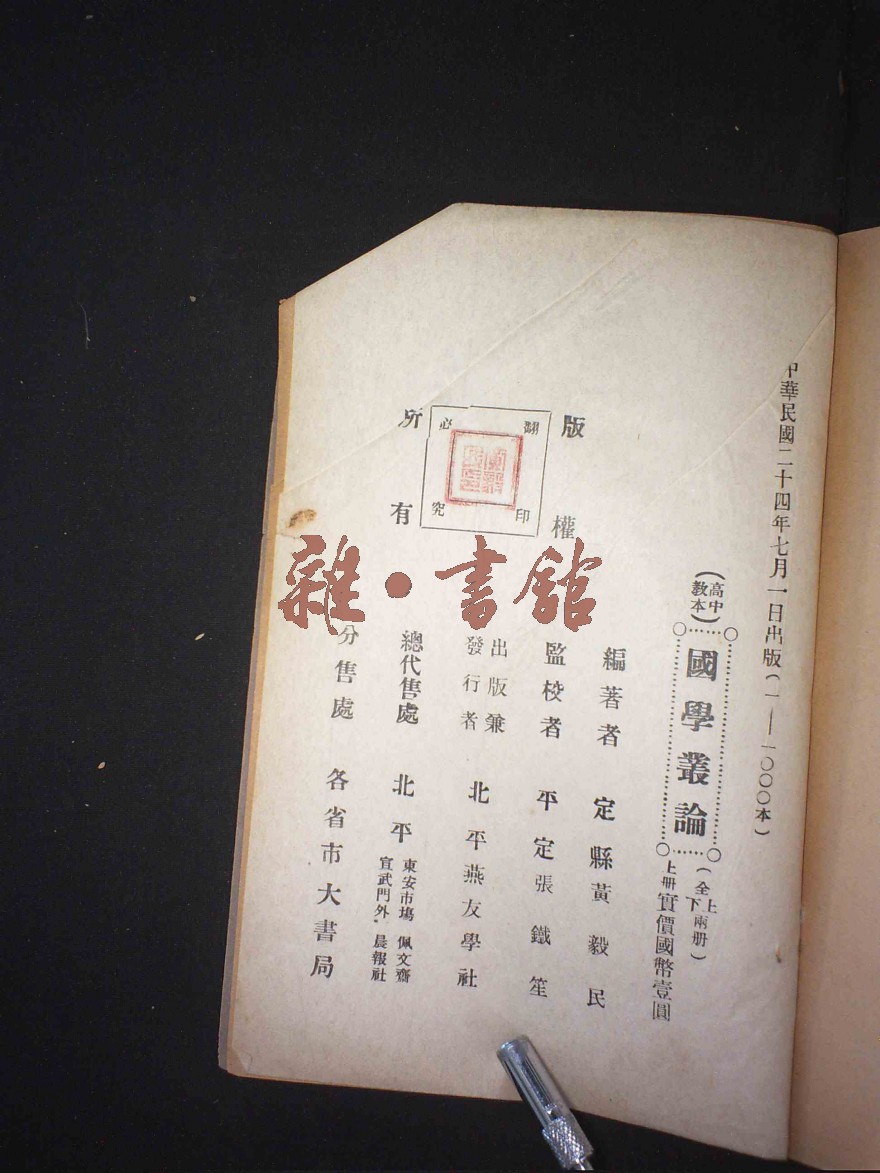 中華民國二十四年七月一日出版(一——一〇〇〇本)
(高中教本)
國學叢論
(全上下兩册)
上册實價國幣壹圓
版權所有
翻印必究
編著者 定縣黃毅民
監校者 平定張鐵笙
出版兼發行者 北平燕友學社
總代售處 北平 東安市場 佩文齋
宣武門外 晨報社
分售處 各省市大書局
雜·書館